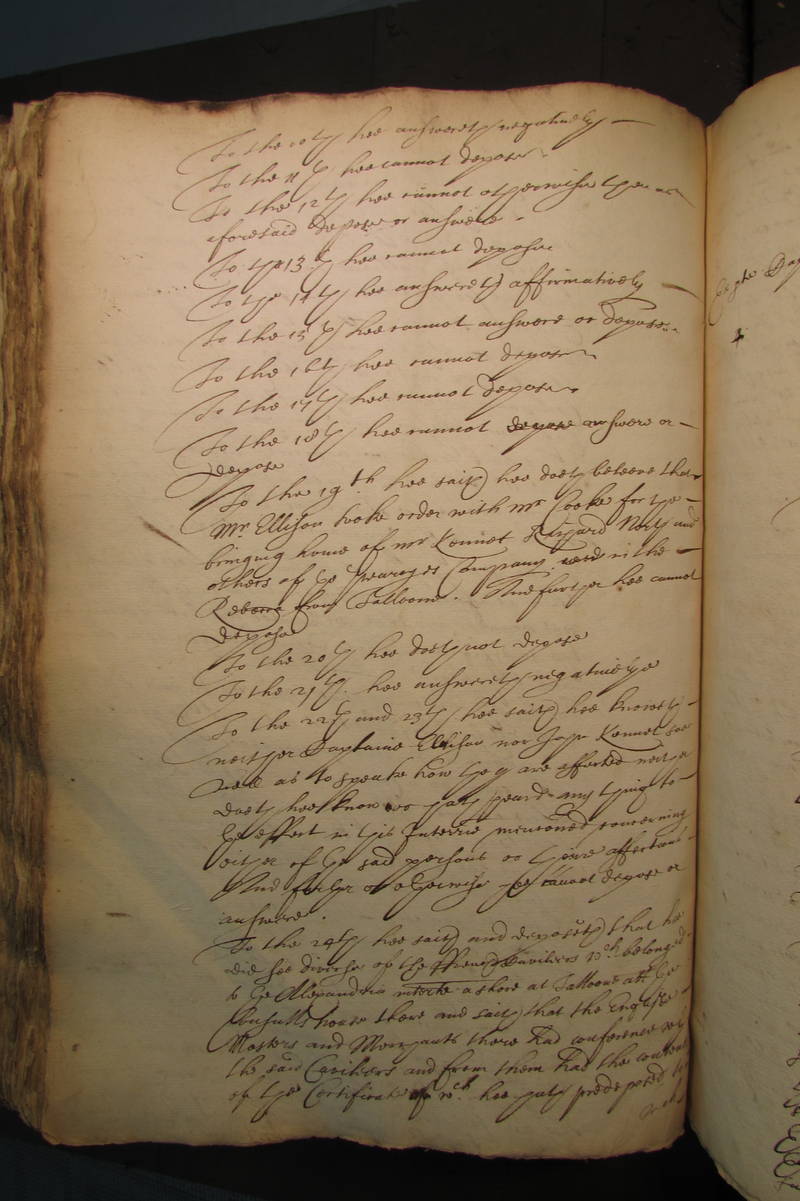 To the 10th hee answereth negatively
To the 11th hee cannot depose
To the 12th hee cannot otherwise then as
aforesaid depose or answere
To the 13th hee cannot depose
To the 14th hee answereth affirmatively
To the 15th hee cannot answere or depose
To the 16th hee cannot depose
To the 17th hee cannot depose
To the 18th hee cannot depose answere or
depose
To the 19th hee saith hee doth beleeve that
Mr. Ellison tooke order with Mr Cooke for the
bringing home of Mr Kennet Richard and
others of the Company in the
Rebecca from Talloone. And further hee cannot
depose
To the 20th hee doeth not depose
To the 21th hee answereth negatively
To the 22th and 23th hee saith hee knoweth
neither Captaine Ellison nor Kennet soe
well as to speake how they are affected neither
doeth hee know or hath heard any thing to
the effect in this Interrie mencioned concerning
either of the said persons or theire affections
And further or otherwise hee cannot depose or
answere.
To the 24th hee saith and deposeth that hee
did see diverse of the ffrench Caviliers wch belonged
to the Alexandria a shore at Talloone att the
Consulls house there and saith that the English
Masters and Merchants there had conference with
the said Caviliers and from them had the contents
of the Certificate of wch. hee hath predeposed